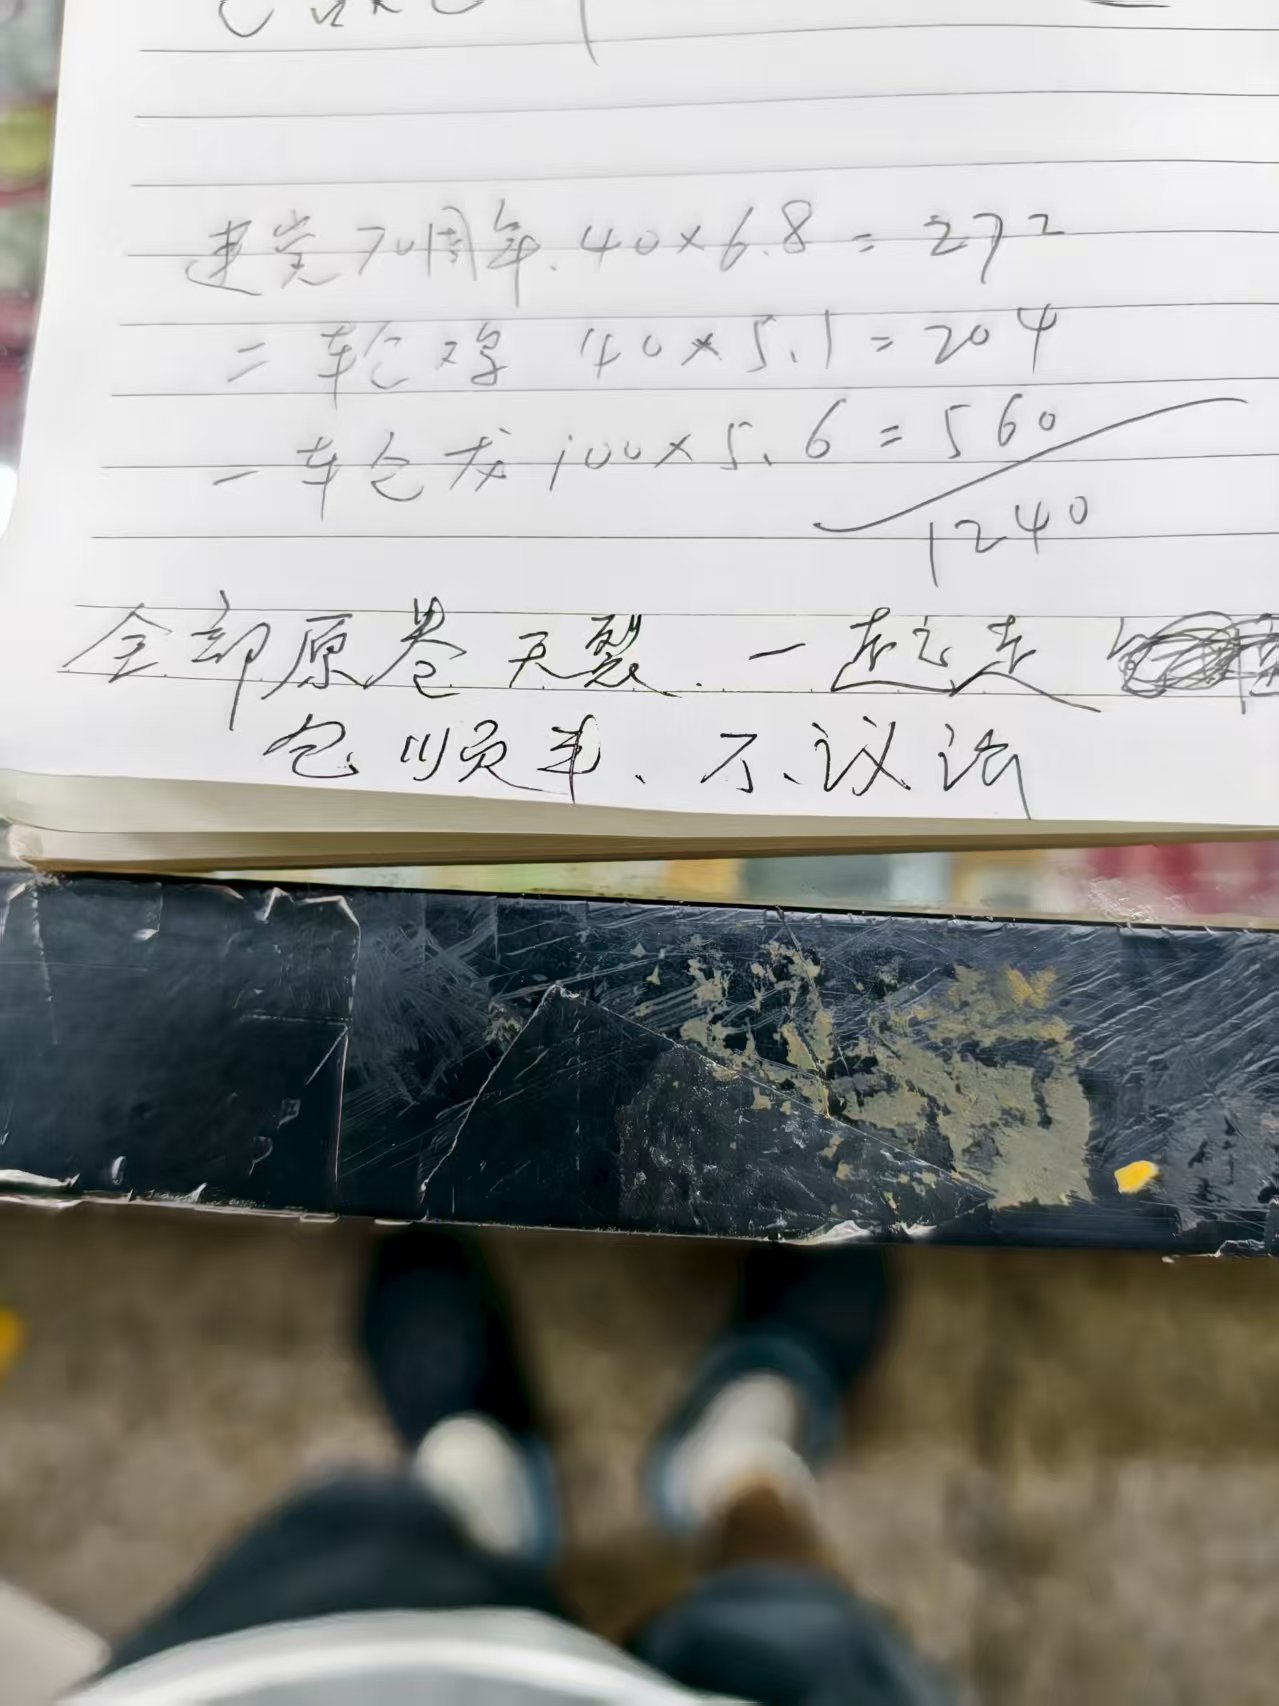 建党70周年.40×6.8=272
二轮鸡 40×5.1=204
一轮龙 100×5.6=560
1240
全部原卷无裂.一起走
包顺丰、不议价